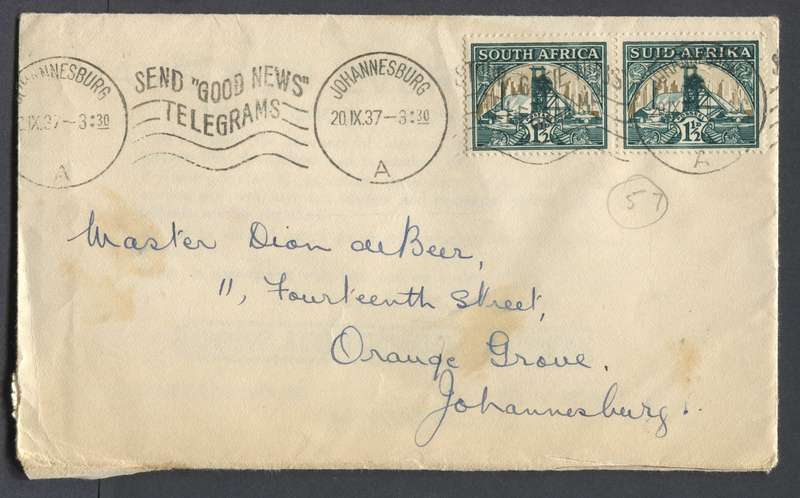 JOHANNESBURG
IX.37-3:30
A
SEND "GOOD NEWS"
TELEGRAMS
JOHANNESBURG
20.IX.37-3:30
A
SOUTH AFRICA
1½
SUID-AFRIKA
1½
A
57
Master Dion de Beer,
11, Fourteenth Street,
Orange Grove.
Johannesburg.